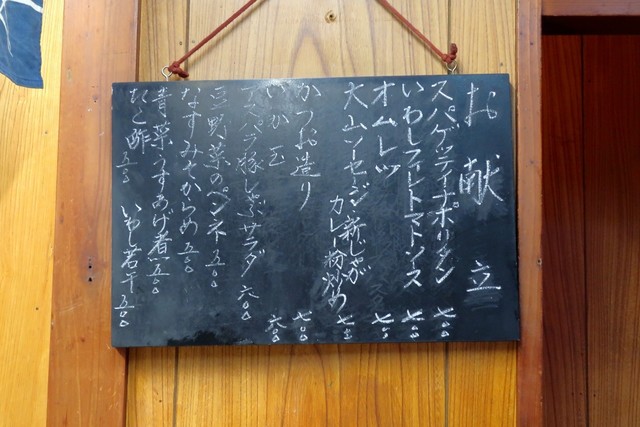 お献立
スパゲッティナポリタン 七〇〇
いわしフィレトマトソース 七〇〇
オムレツ 七〇〇
大山ソーセージ新じゃが
カレー粉炒め 七〇〇
かつお造り 七〇〇
いか玉 六〇〇
アスパラ豚しゃぶサラダ 六〇〇
豆野菜のペンネ 五〇〇
なすみそからめ 五〇〇
青菜うすあげ煮 五〇〇
たこ酢 五〇〇 いわし若干 五〇〇